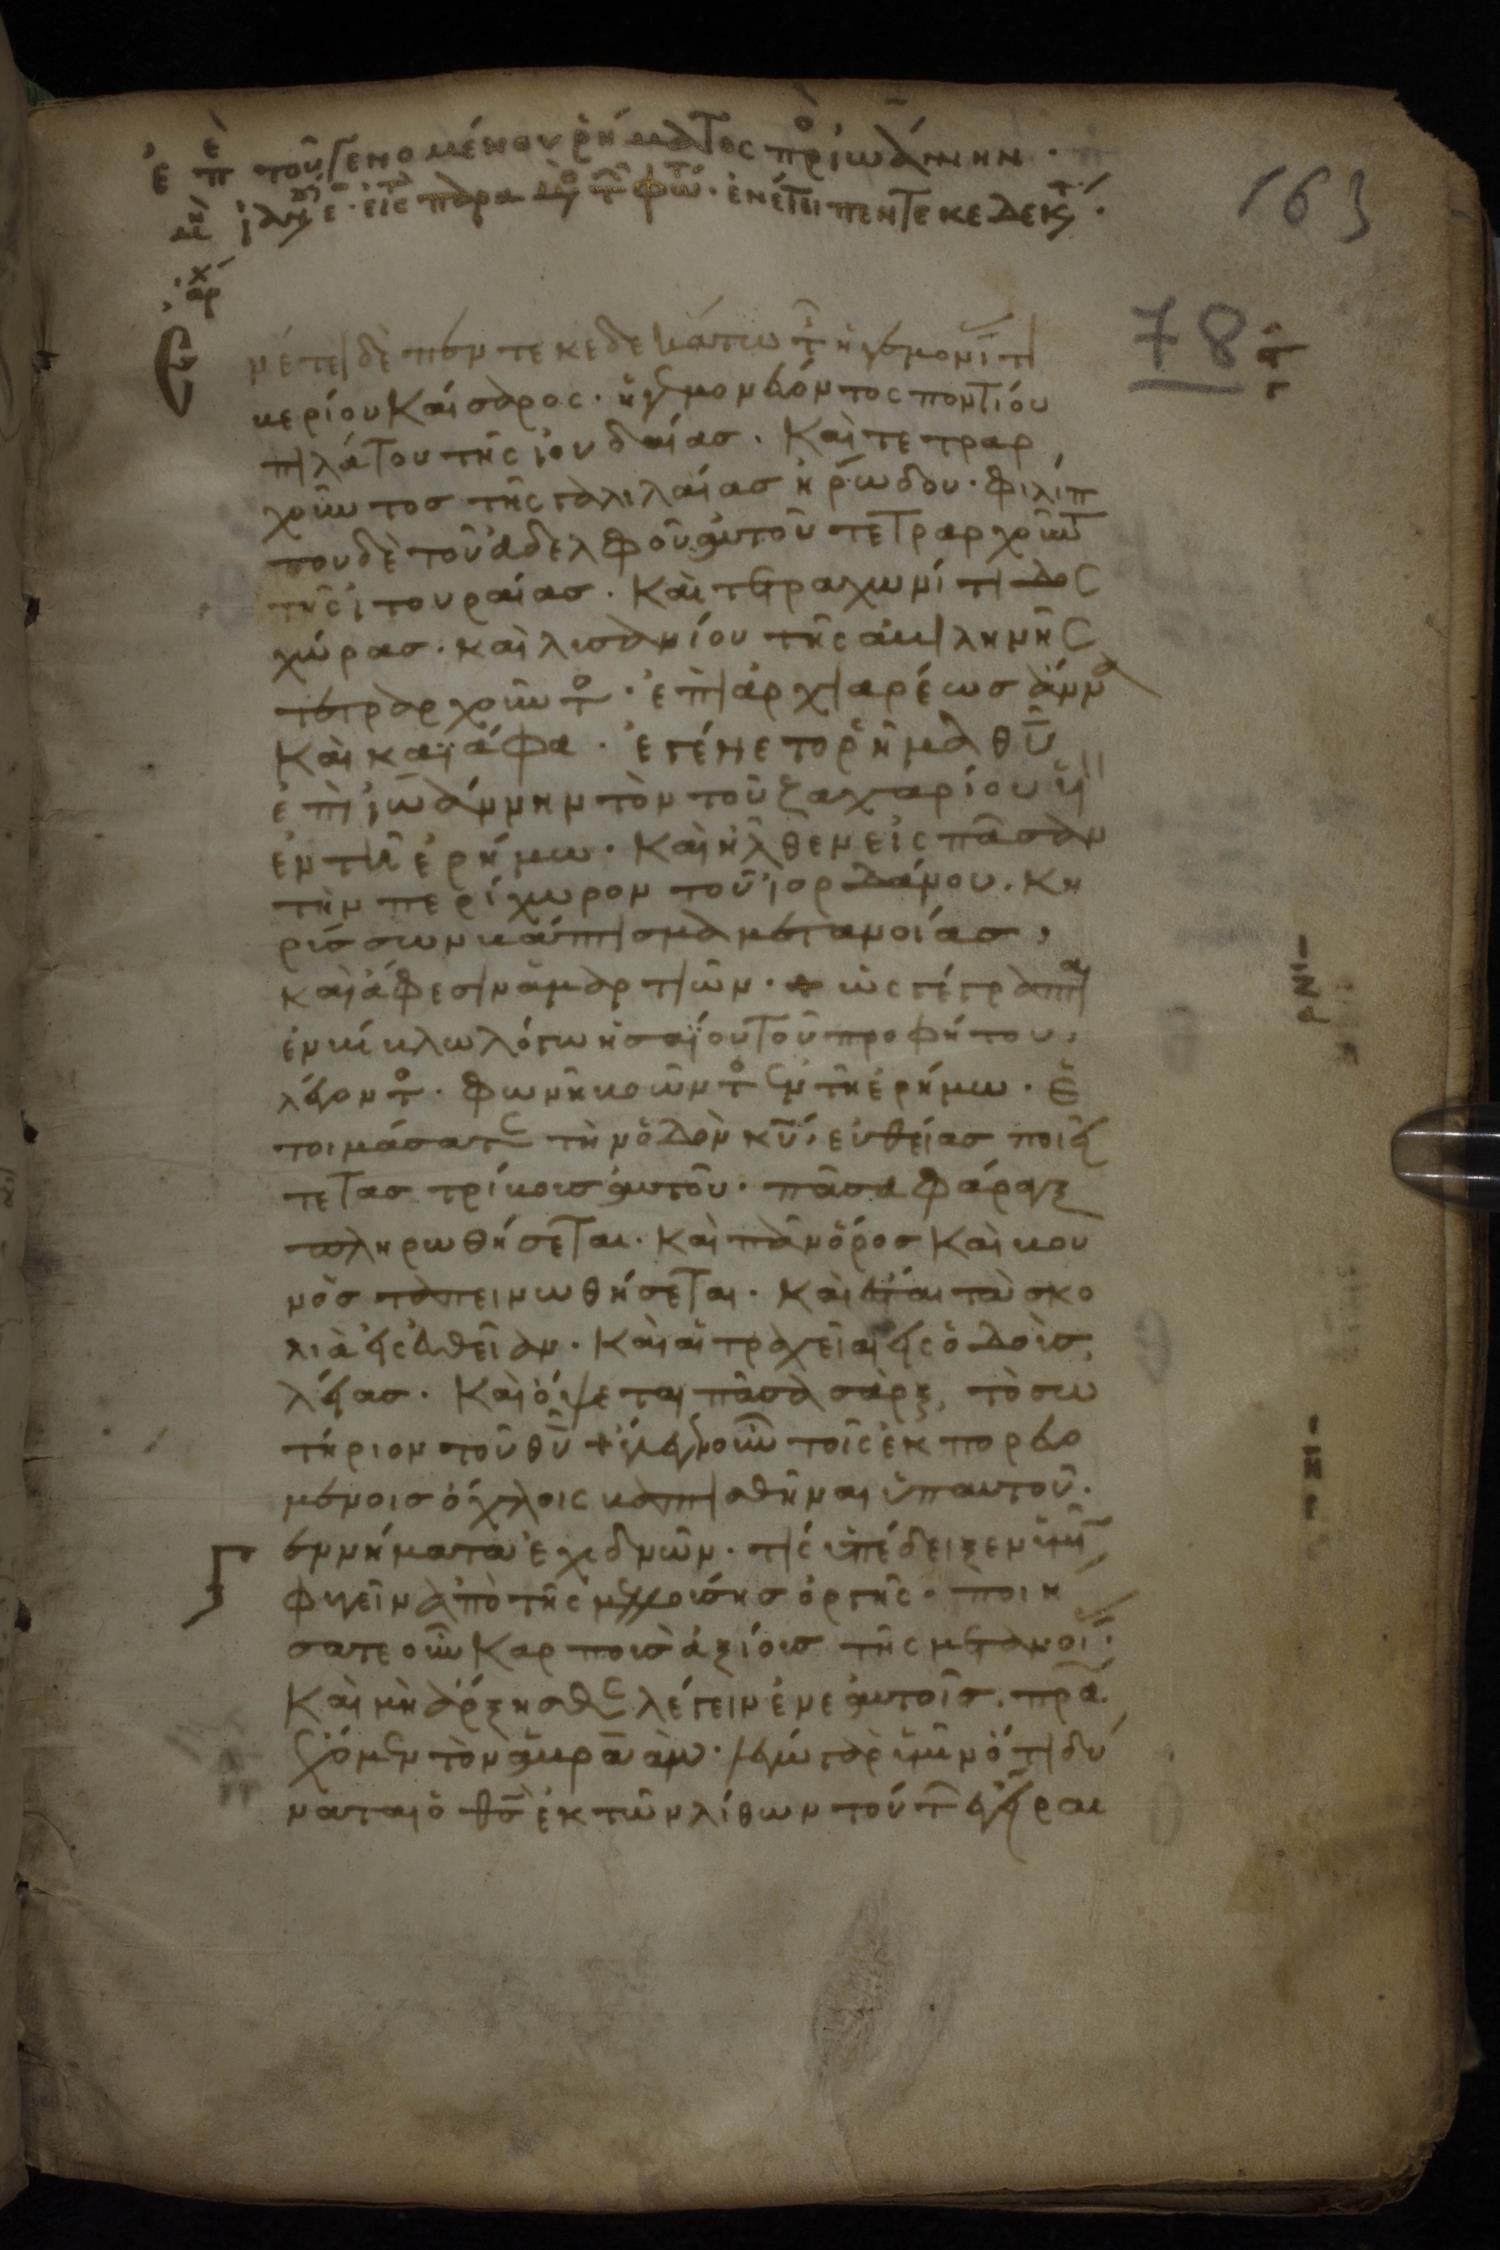 ἐπὶ τοῦ γενομένου ῥήματος πρὸς ἰωάννην.
163
78
Ε
ν ἔτει δὲ πεντεκεδεκάτω τῆς ἡγεμονίας τι
βερίου Καίσαρος. ἡγεμονεύοντος ποντίου
πιλάτου τῆς ἰουδαίας. Καὶ τετραρ
χοῦντος τῆς γαλιλαίας ἡρώδου. φιλίπ
που δὲ τοῦ ἀδελφοῦ αὐτοῦ τετραρχοῦντ
τῆς ἰτουραίας. Καὶ τετραχωνίτιδος
χώρας. καὶ λισανίου τῆς ἀβιληνῆς
τετραρχοῦντος. ἐπὶ ἀρχιαρέως ἄννα
Καὶ καϊάφα. ἐγένετο ῥῆμα θῦ
ἐπὶ ἰωάννην τὸν τοῦ ζαχαρίου ὑϊ
ἐν τῆ ἐρήμω. Καὶ ἦλθεν εἰς πᾶσαν
τὴν περίχωρον τοῦ ἰορδάνου. Κη
ρίσσων βάπτισμα μετανοίας,
καὶ ἄφεσιν ἁμαρτιῶν. ὡς γέγραπται
ἐν βίβλω λόγων ἠσαΐου τοῦ προφήτου,
λέγοντος. Φωνὴ βοῶντος ἐν τῆ ἐρήμω. ἑ
τοιμάσατε τὴν ὁδὸν κῦ, εὐθείας ποιεῖ
τε τὰς τρίβους αὐτοῦ. πᾶσα φάραγξ
πληρωθήσεται. Καὶ πᾶν ὄρος Καὶ βου
νὸς ταπεινωθήσεται. Καὶ ἔσται τὰ σκο
λιὰ εἰς εὐθεῖαν. Καὶ αἱ τραχεῖαι εἰς ὁδοὺς
λείας. Καὶ ὄψεται πᾶσα σὰρξ, τὸ σω
τήριον τοῦ θῦ + ἔλεγεν οὖν τοῖς ἐκπορευο
μένοις ὄχλοις βαπτισθῆναι ὑπ αὐτοῦ.
γεννήματα ἐχιδνῶν. τίς ὑπέδειξεν ὑμῖν
φυγεῖν ἀπὸ τῆς μελλούσης ὀργῆς. ποιή
σατε οὖν Καρποὺς ἀξίους τῆς μετανοί.
Καὶ μὴ ἄρξησθε λέγειν ἐν ἑαυτοῖς. πρα
ἔχομεν τὸν ἀβραὰμ. λέγω γὰρ ὑμῖν ὅτι δύ
ναται ὁ θς ἐκ τῶν λίθων τούτων ἐγεῖραι